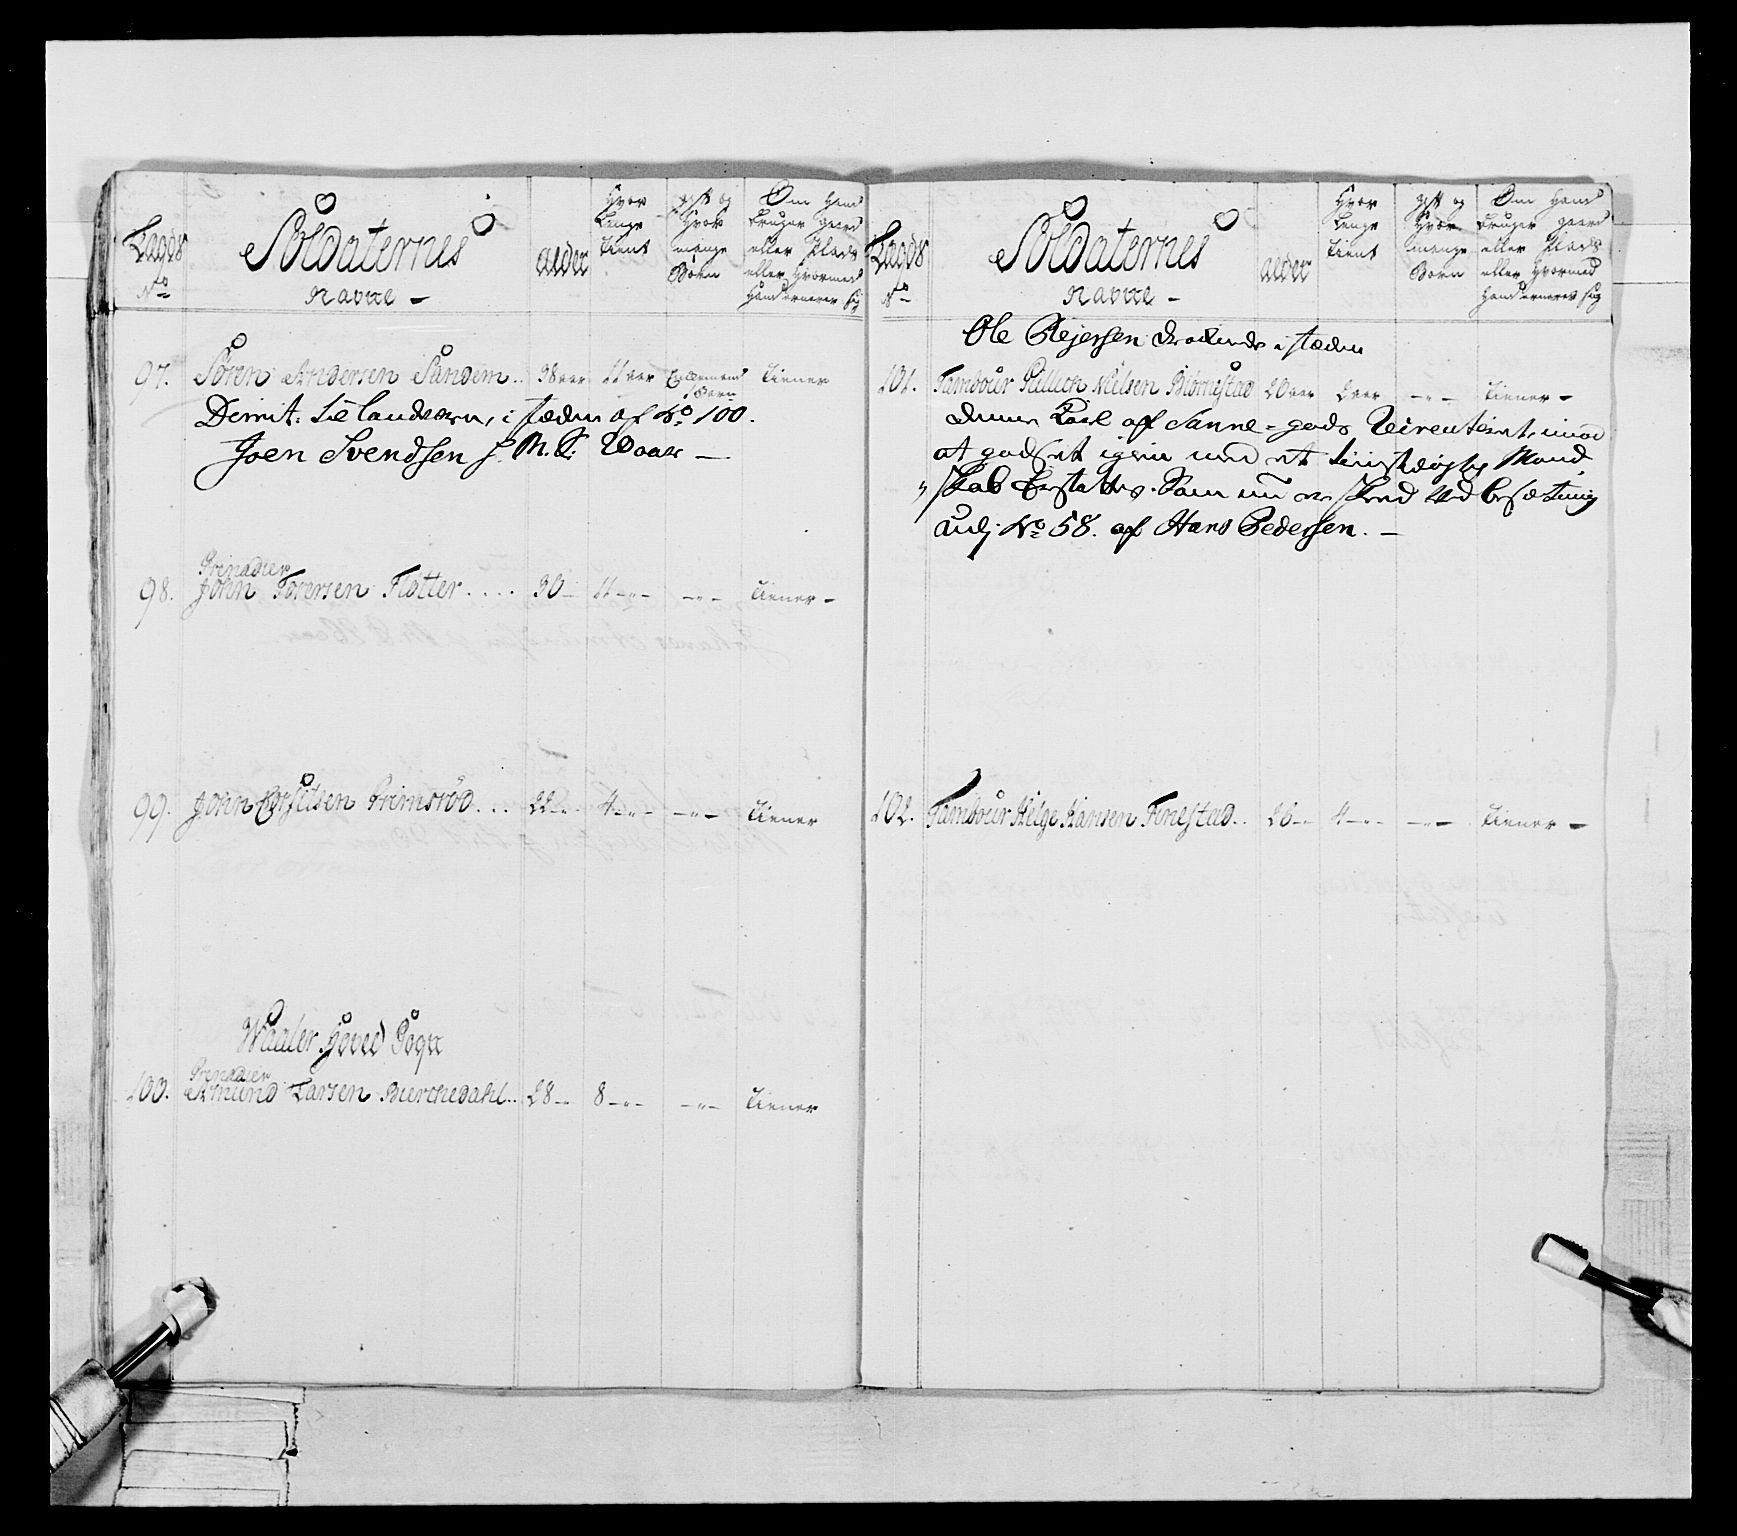 Lægds
No
Soldaternes
Navne -
alder
Hvor
Lenge
tient
gift og
Hvor
mange
Børn
Om Hand
bruger gaard
eller Plads
eller Hvormed
Hand ernerer sig
97. Sören Andersen Sandem.. 38 aar 11 aar Enkemand 1 Barn tiener
Dimit: til landværn, i stæden af No 100.
Joen Svendsen Waaler -
Grenadier
98. John Torersen Flötter.... 30 - 11 -"- -"- tiener -
99. John Corfitsen Grimsröd... 22 -"- 4 -"- -"- tiener
Waaler Hoved Sogn
Grenadier
100. Amund Larsen Burchedahl.. 28 -"- 8 -"- -"- tiener
Lægds
No
Soldaternes
Navne -
alder
Hvor
Lenge
tient
gift og
Hvor
mange
Børn
Om Hand
bruger gaard
eller Plads
eller Hvormed
Hand ernerer sig
Ole Rejersen i stæden
101. Tambour Nielsen Biörnestad 20 aar 2 aar -"- tiener -
denne Karl af gods imod
at godset igien med et Mand
skab Erstattes. Som nu er skeed ved besætning
udj No 58. af Hans Pedersen. -
102. Tambour Helge Hansen Finestad.. 26 -"- 4 -"- -"- tiener -